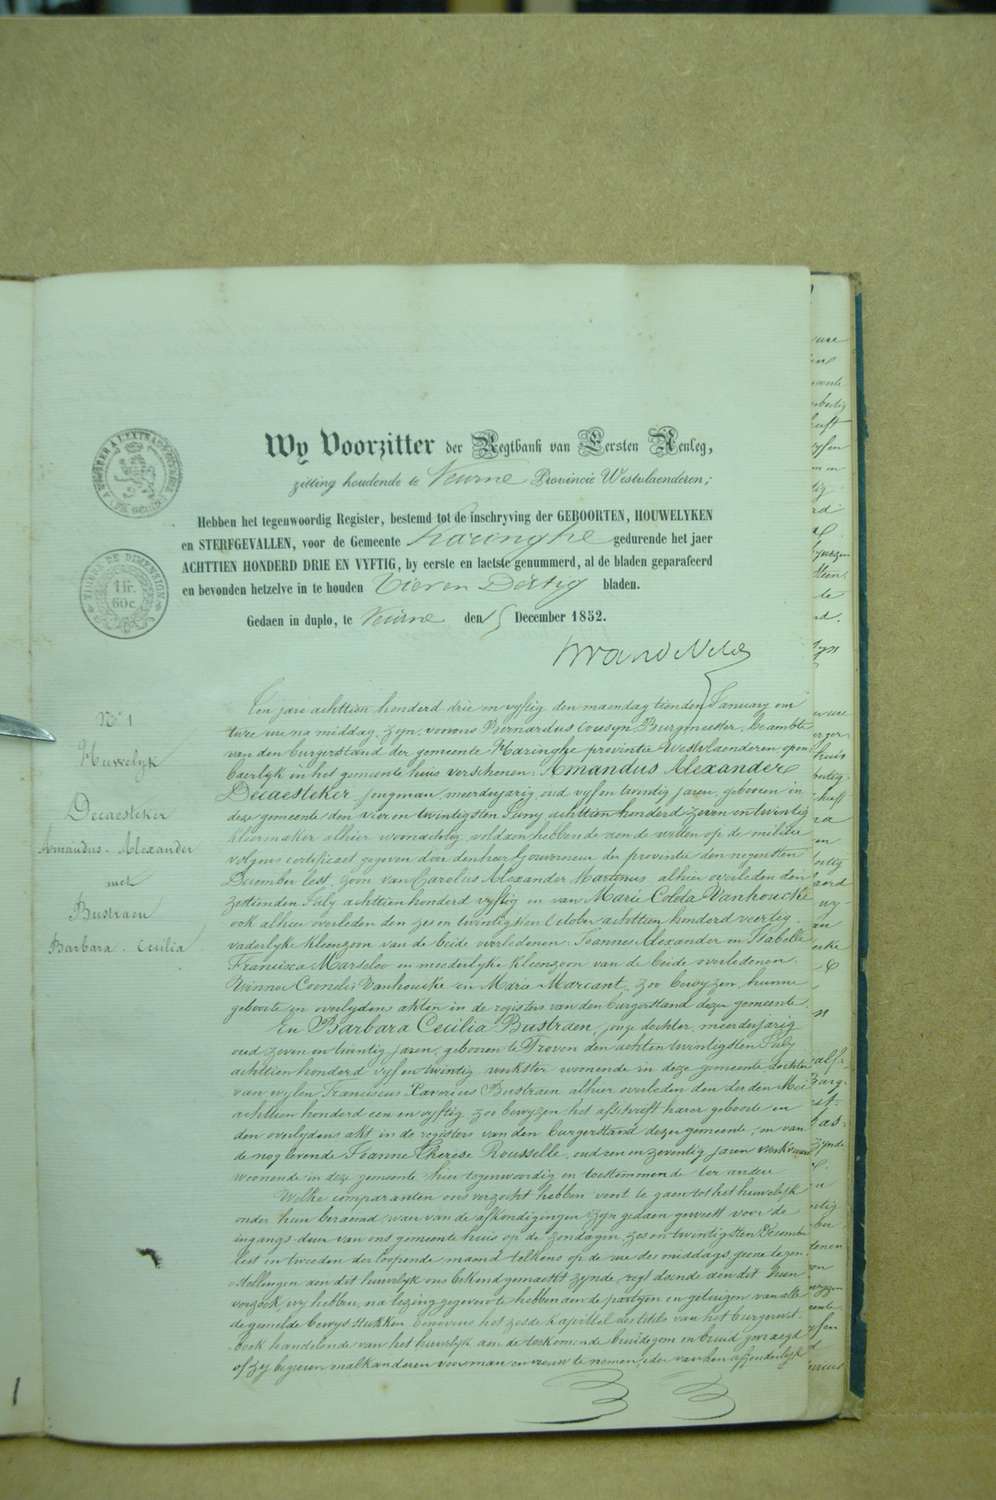 Wy Voorzitter der Regtbank van Eersten Aenleg,
zitting houdende te Veurne Provincie Westvlaenderen;
Hebben het tegenwoordig Register, bestemd tot de inschryving der GEBOORTEN, HOUWELYKEN
en STERFGEVALLEN, voor de Gemeente Haringhe gedurende het jaer
ACHTTIEN HONDERD DRIE EN VYFTIG, by eerste en laetste genummerd, al de bladen geparafeerd
en bevonden hetzelve in te houden Vier en Dertig bladen.
Gedaen in duplo, te Veurne den 15 December 1852.
TIMBRE DE DIMENSION
1 fr.
60 c.
N° 1
Huwelyk
Decaesteker
Amandus-Alexander
met
Bustraen
Barbara-Cecilia
Ten jare achttien honderd drie en vyftig den maendag tienden January om
twee ure na middag, zyn voor ons Bernardus Cousyn Burgmeester, beambte
van den burgerstand der gemeente Haringhe provintie Westvlaenderen open
baerlyk in het gemeente huis verschenen: Amandus Alexander
Decaesteker jongman, meerderjarig, oud vyf en twintig jaren, geboren in
deze gemeente den vier en twintigsten Juny achttien honderd zeven en twintig
kleermaker alhier woonachtig, voldaen hebbende aen de wetten op de militie
volgens certificaet gegeven door den heer Gouverneur der provintie den negensten
December lest, zoon van Carolus Alexander Martinus alhier overleden den
zestienden July achttien honderd vyftig en van Marie Coleta Vanhoucke
ook alhier overleden den zes en twintigsten October achttien honderd veertig.
vaderlyke kleenzoon van de beide overledenen: Joannes Alexander en Isabelle
Francisca Marseloo en moederlyke kleenzoon van de beide overledenen.
Winnoc Cornelis Vanhoucke en Marie Marcant, zoo bewyzen hunne
geboorte en overlydens akten in de registers van den burgerstand dezer gemeente
En Barbara Cecilia Bustraen, jonge dochter, meerderjarig
oud zeven en twintig jaren, geboren te Proven den achtentwintigsten July
achttien honderd vyf en twintig, werkster wonende in deze gemeente dochter
van wylen Franciscus Xaverius Bustraen alhier overleden den derden Mei
achttien honderd een en vyftig, zoo bewyzen het afschrift harer geboorte en
den overlydens akt in de registers van den burgerstand dezer gemeente, en van
de nog levende Joanne Therese Rousselle, oud een en zeventig jaren werkvrouw
woonende in deze gemeente hier tegenwoordig en toestemmende ter andere
Welke comparanten ons verzocht hebben voort te gaen tot het huwelyk
onder hun beraemd, waer van de afkondigingen zyn gedaen geweest voor de
ingangs deur van ons gemeente huis op de zondagen zes en twintigsten December
lest en tweeden der loopende maend telkens op de ure des middags, geene tegen
stellingen aen dit huwelyk ons bekend gemaekt zynde, regt doende aen dit hun
verzoek wy hebben, na lezing gegeven te hebben aen de partyen en getuigen van alle
de gemelde bewys stukken benevens het zesde kapittel des titels van het burgerwet
boek handelende van het huwelyk aen de toekomende bruidegom en bruid gevraegd
of zy begeren malkanderen voor man en vrouw te nemen, ider van hen afzonderlyk